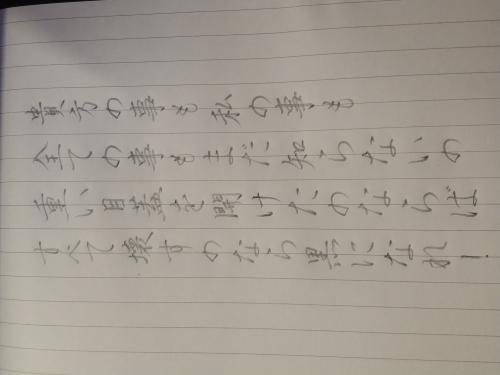 貴方の事も私の事も
全ての事もまだ知らないの
重い目蓋を開けたのならば
すべて壊すのなら黒になれ!